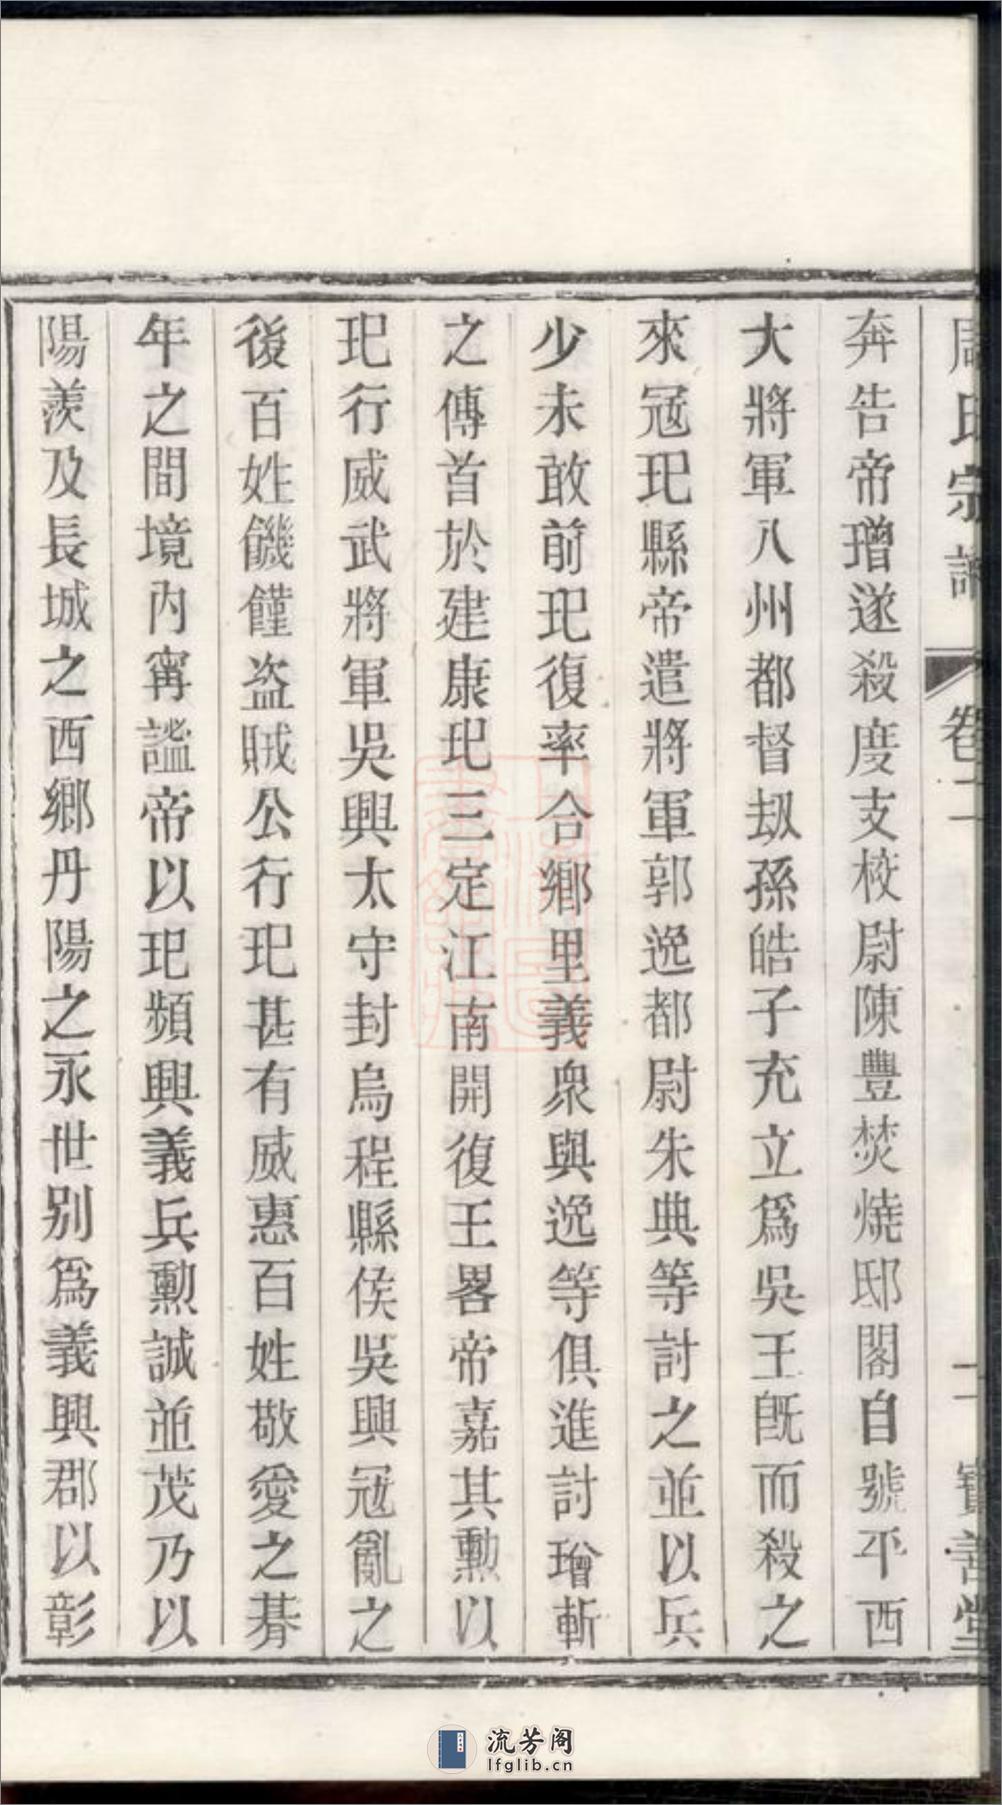 周氏宗譜 卷二 二 寶善堂
奔告帝璔遂殺度支校尉陳豐焚燒邸閣自號平西
大將軍八州都督刼孫皓子充立爲吳王旣而殺之
來冦玘縣帝遣將軍郭逸都尉朱典等討之並以兵
少未敢前玘復率合鄉里義衆與逸等俱進討璔斬
之傳首於建康玘三定江南開復王畧帝嘉其勳以
玘行威武將軍吳興太守封烏程縣侯吳興冦亂之
後百姓饑饉盗賊公行玘甚有威惠百姓敬愛之朞
年之間境內寗謐帝以玘頻興義兵勳誠並茂乃以
陽羨及長城之西鄉丹陽之永世别爲義興郡以彰
流芳阁
lfglib.cn